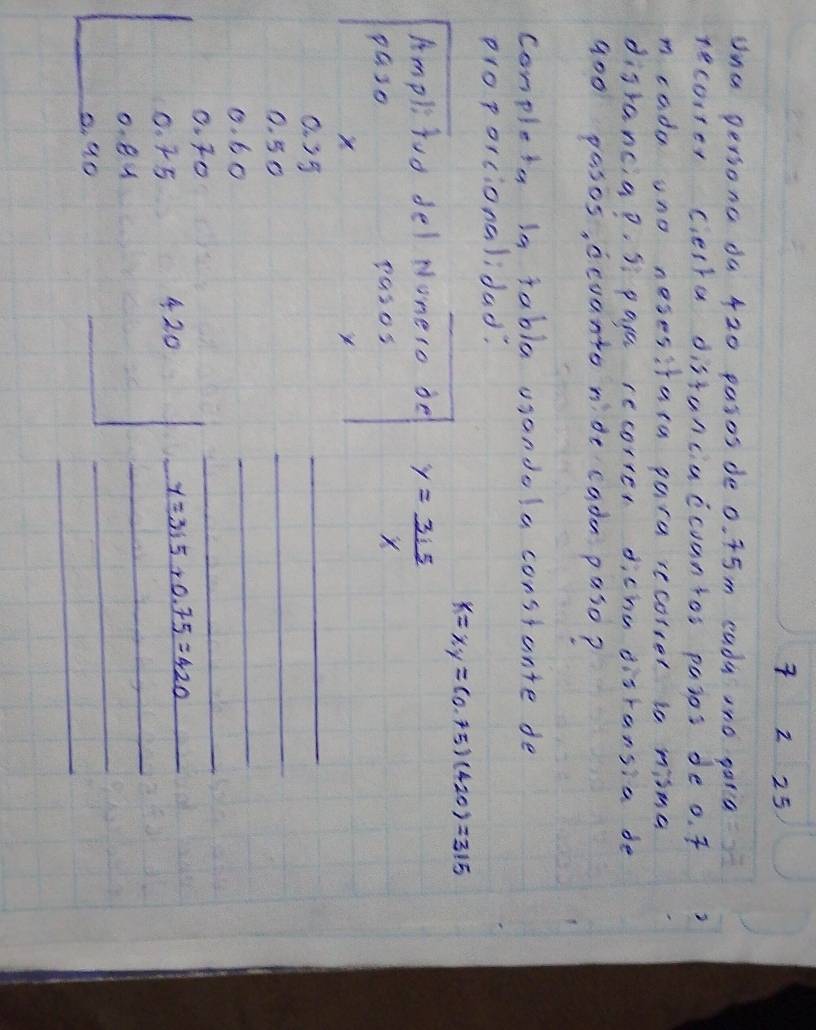 7 2 25
Una persona da 420 pasos de 0.75m cada uno para
recorrer cierta distancia ¿cuantos pasos de 0.7
m cada uno nesesitara para recorrer la misma
distancia?. Si para recorrer dicha distansia de
900 pasos, ¿cuanto mide cada paso?
Completa la tabla usando la constante de
proporcionalidad:
K=xy=(0.75)(420)=315
Amplitud del Numero de y = 315
paso pasos x
x x
0.35
0.50
0.60
0.70
0.75 420 y=315÷0.75=420
0.84
0.90